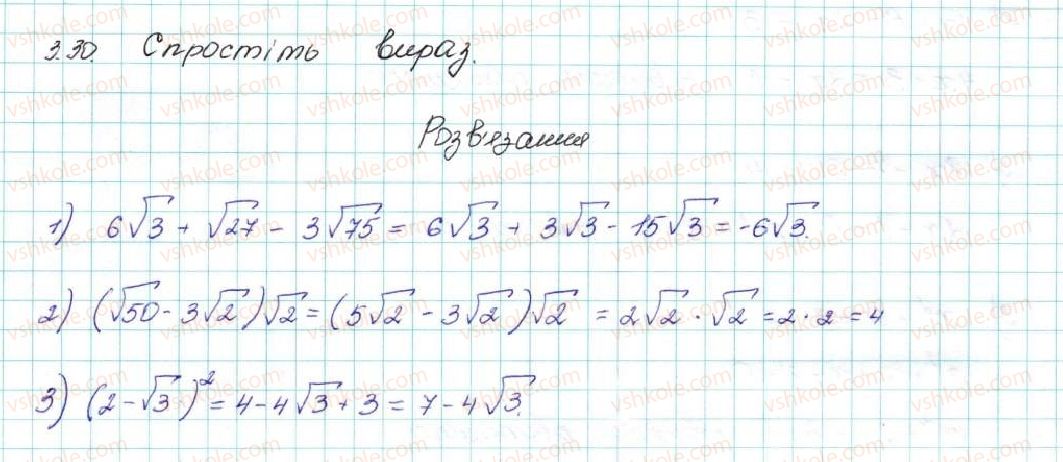 3.30. Спростіть вираз.
Розв'язання
1) 6√3 + √27 - 3√75 = 6√3 + 3√3 - 15√3 = -6√3.
2) (√50 - 3√2)√2 = (5√2 - 3√2)√2 = 2√2 · √2 = 2 · 2 = 4
3) (2 - √3)² = 4 - 4√3 + 3 = 7 - 4√3.